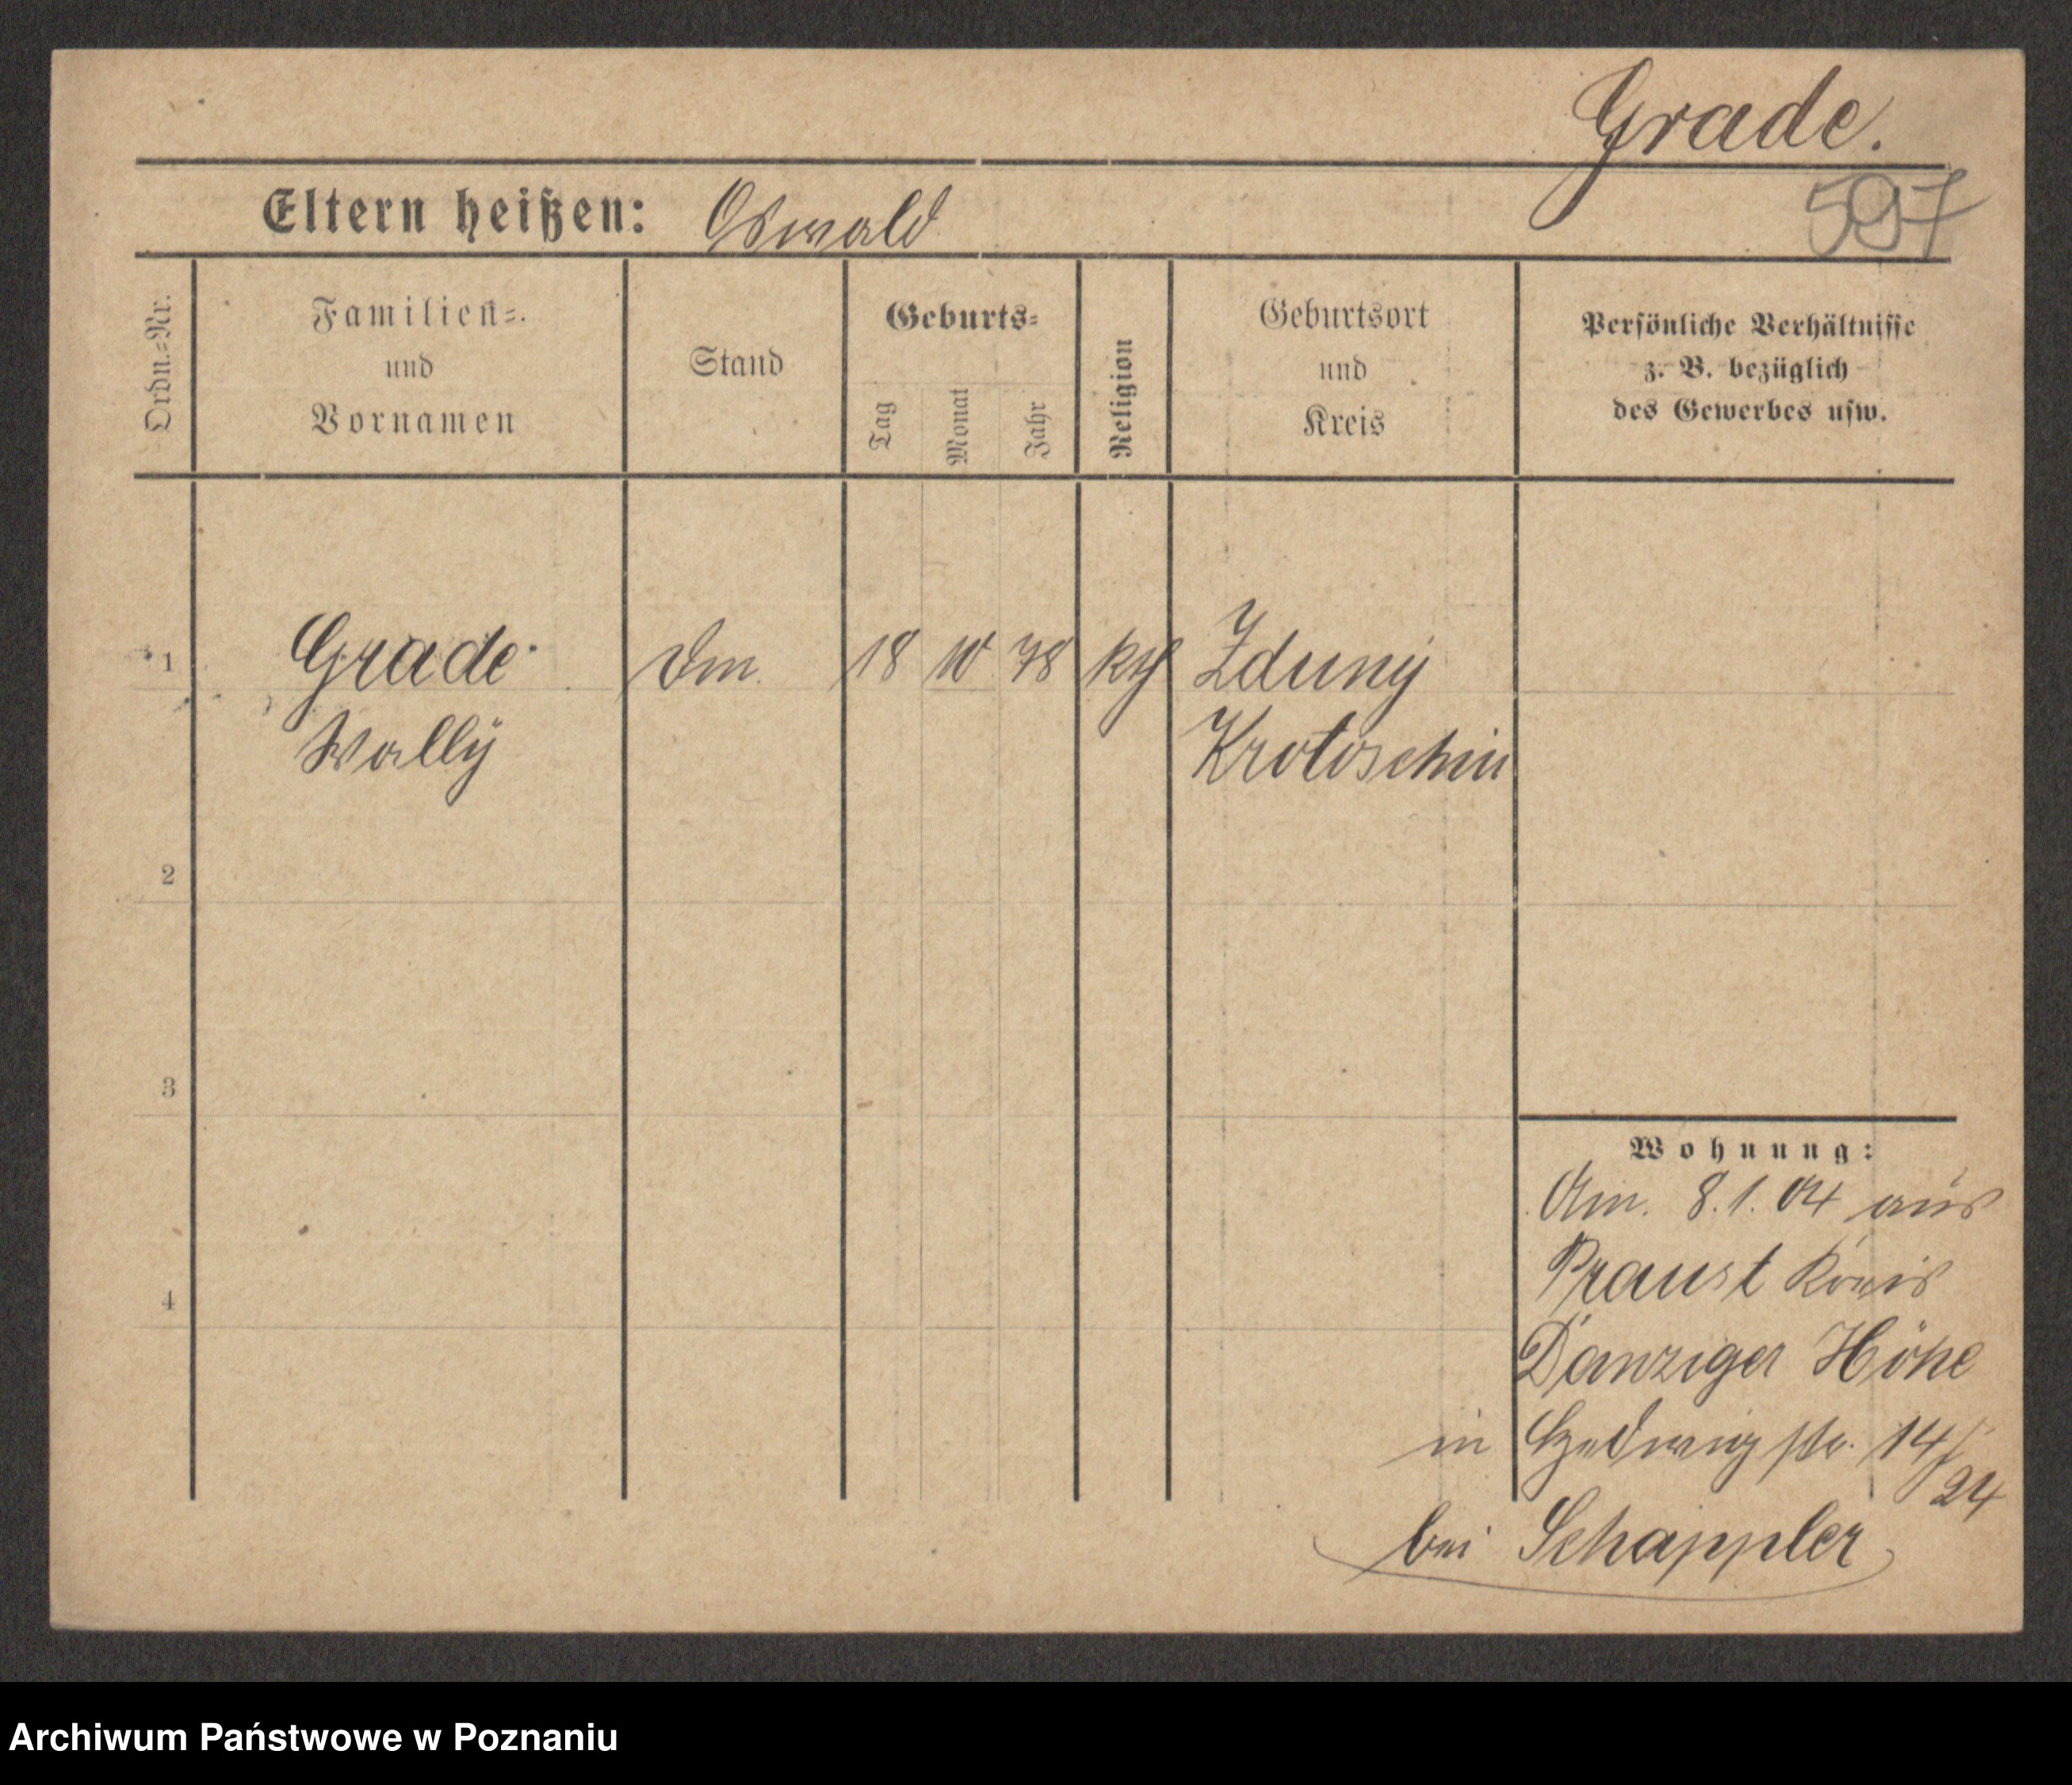 Grade.
597
Eltern heißen: Oswald
Ordn.=Nr.
Familien=
und
Vornamen
Stand
Geburts=
Tag
Monat
Jahr
Religion
Geburtsort
und
Kreis
Persönliche Verhältnisse
z. B. bezüglich
des Gewerbes usw.
1 Grade 18 10 78 kth Zduny
Wally Krotoschin
2
3
Wohnung:
Am. 8.1.04 aus
Praust Kreis
4
Danziger Höhe
in Hedwigstr. 14/
24
bei Schappler
Archiwum Państwowe w Poznaniu